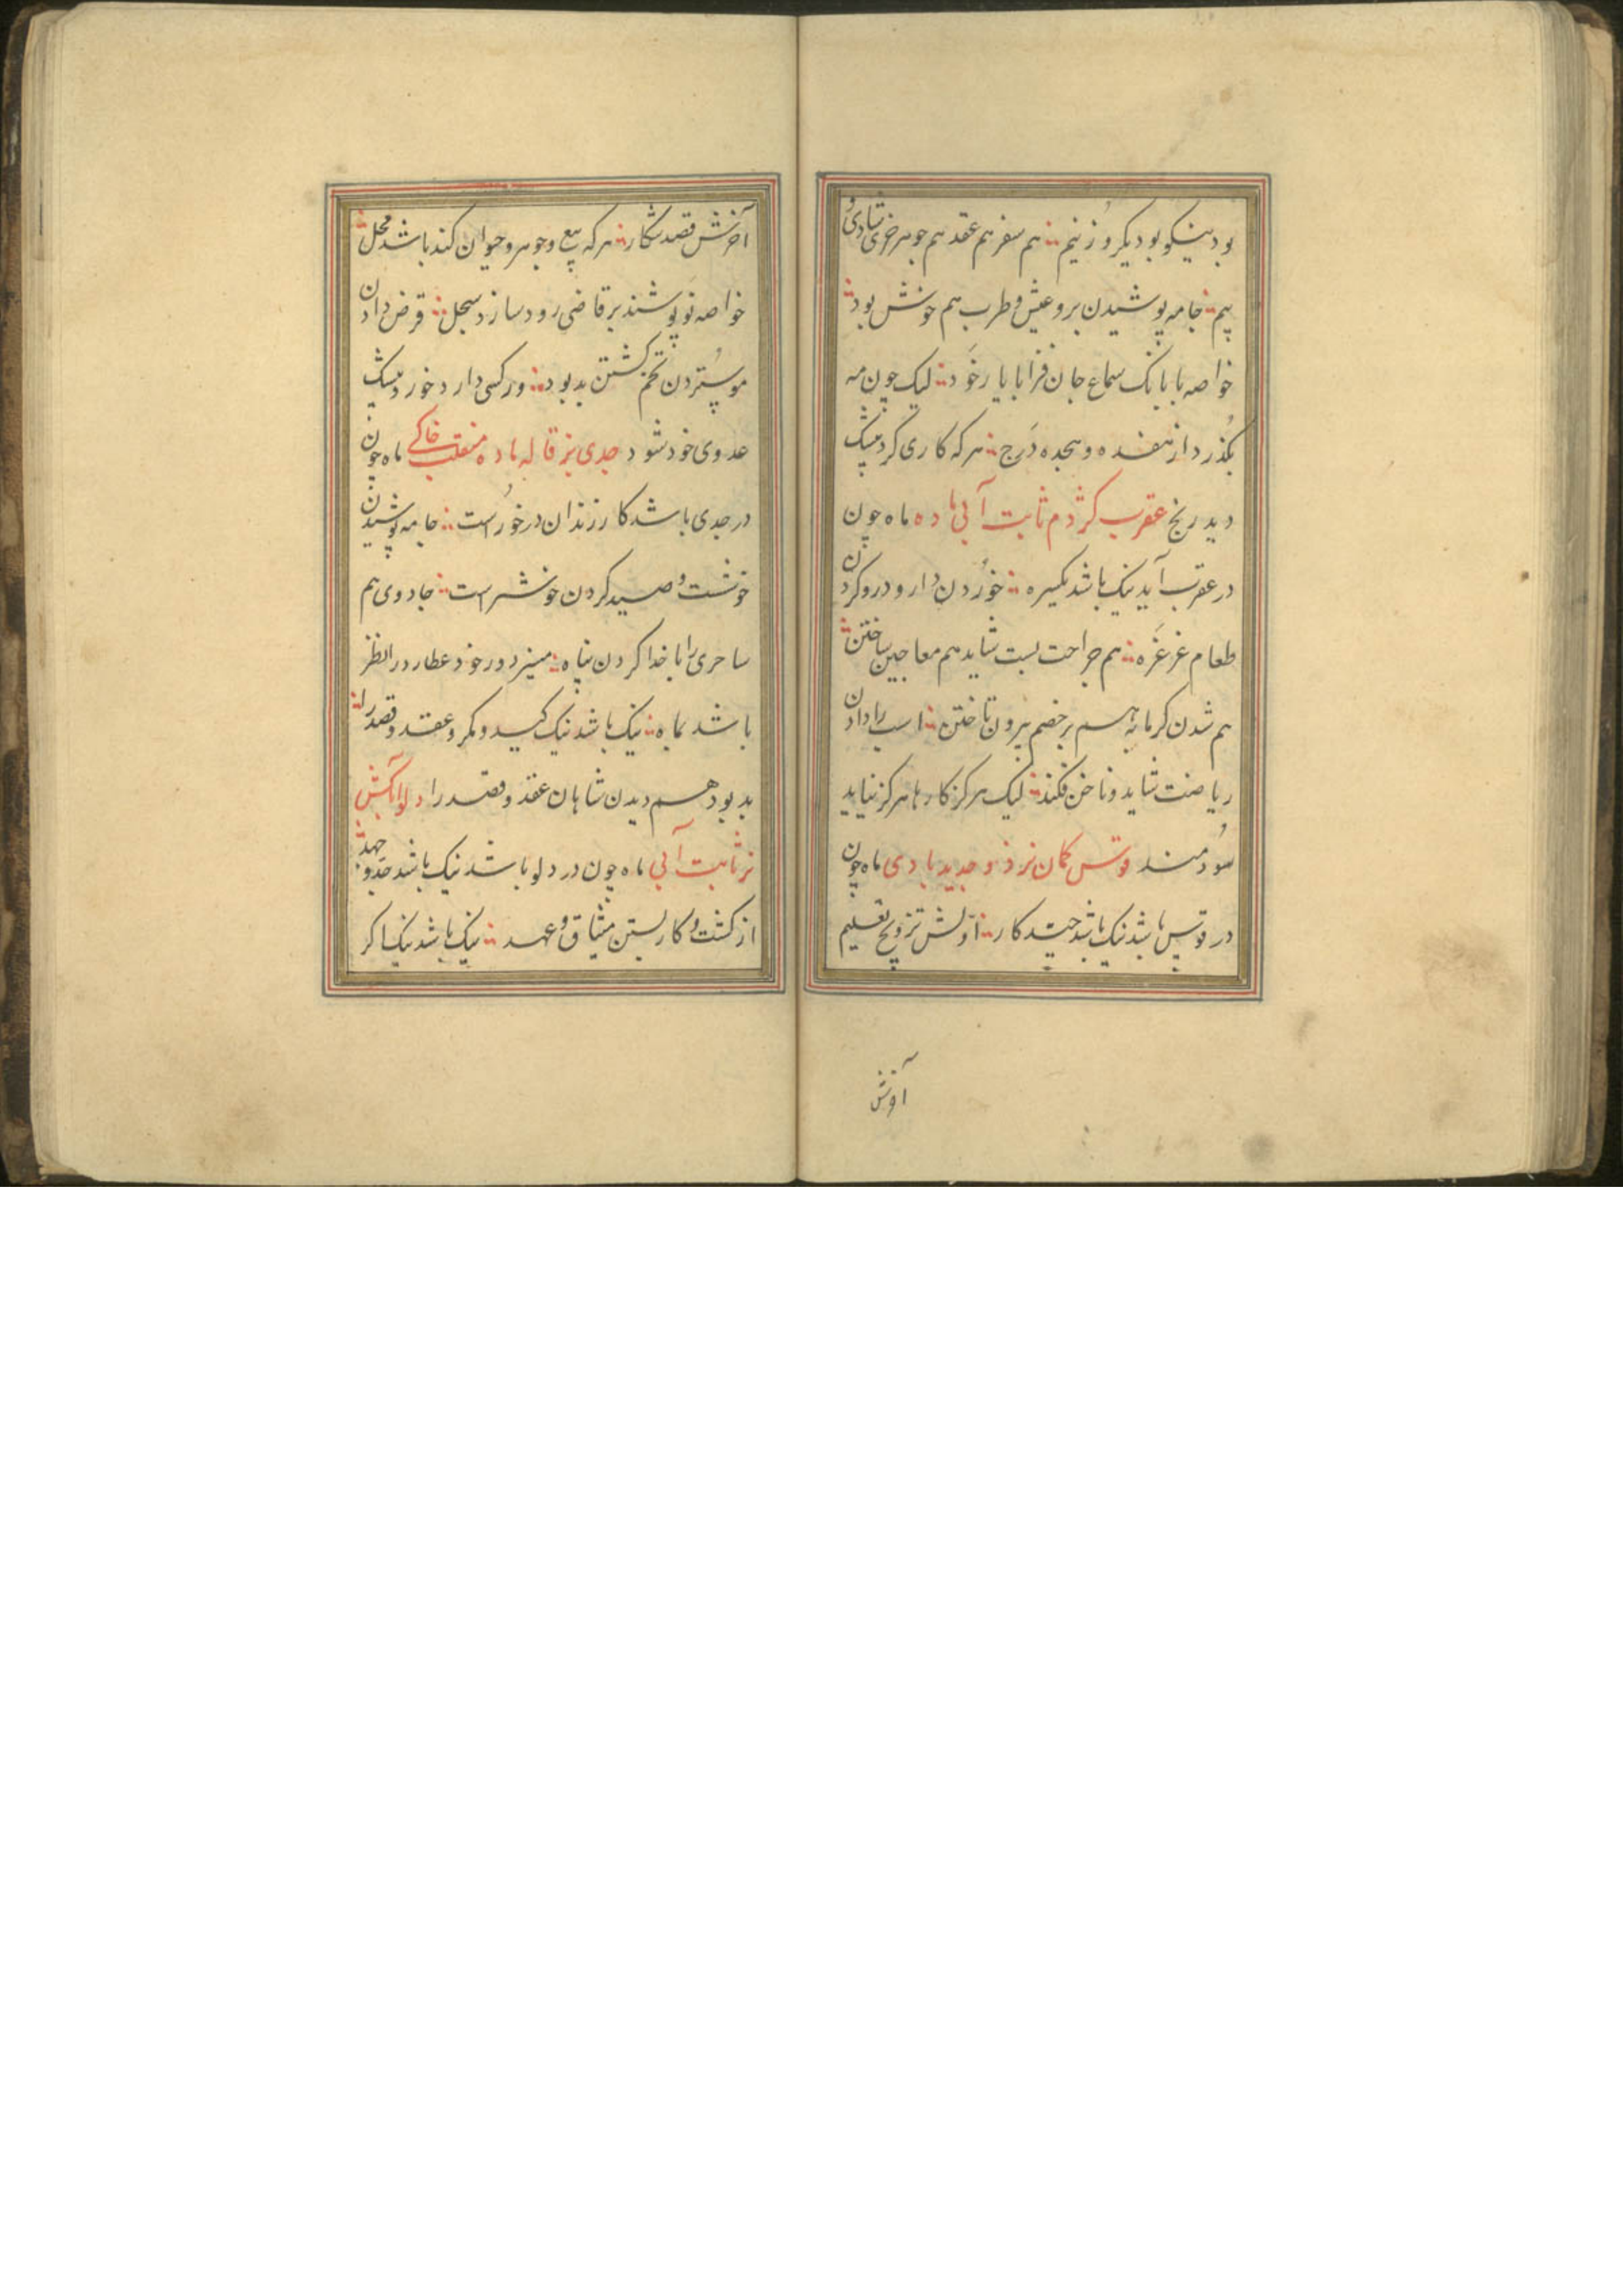 بود نیکو بود دیکر و زنیم ؞ هم سفر هم عقد هم جوهر خری شادی و
بیم ؞ جامه پوشیدن برو عیش و طرب هم خوش بود ؞
خواصه با بانک سماع جان فزا با یار خود ؞ لیک چون مه
بگذرد از هفده و هجده درج ؞ هرکه کاری کرد بیشک
دید رنج عقرب کژدم ثابت آبی ماده ماه چون
در عقرب آید نیک باشد یکسره ؞ خوردن دارو و درو کردن
طعام غرغره ؞ هم جراحت بست شاید هم معاجین ساختن ؞
هم شدن کرمابه هم بر خصم بیرون تاختن ؞ اسب را دادن
ریاضت شاید و ناخن فکند ؞ لیک هرکز کارها هرکز نیاید
سودمند قوس کمان نر ذو جدید بادی ماه چون
در قوس باشد نیک باشد چند کار ؞ اولش تزویج تعلیم
آخرش
آخرش قصد شکار ؞ هرکه بیع و جوهر و حیوان کند باشد محل ؞
خواصه نو پوشند بر قاضی رود سازد سجل ؞ قرض دادن
مو ستردن تخم کشتن بد بود ؞ ور کسی دارد خورد بیشک
عدوی خود شود جدی بزقاله ماده منقلب خاکی ماه چون
در جدی باشد کار رزندان درخورست ؞ جامه پوشیدن
خوشست و صید کردن خوشترست ؞ جادوی هم
ساحری را با خدا کردن پناه ؞ میبرد ورخود عطارد در النظر
باشد بماه ؞ نیک باشد نیک کید و مکر و عقد و قصد را ؞
بد بود هم دیدن شاهان عقد و قصد را دلو آبکش
نر ثابت آبی ماه چون در دلو باشد نیک باشد جد و جهد ؞
از کشت و کار بستن میثاق و عهد ؞ نیک باشد نیک اکر